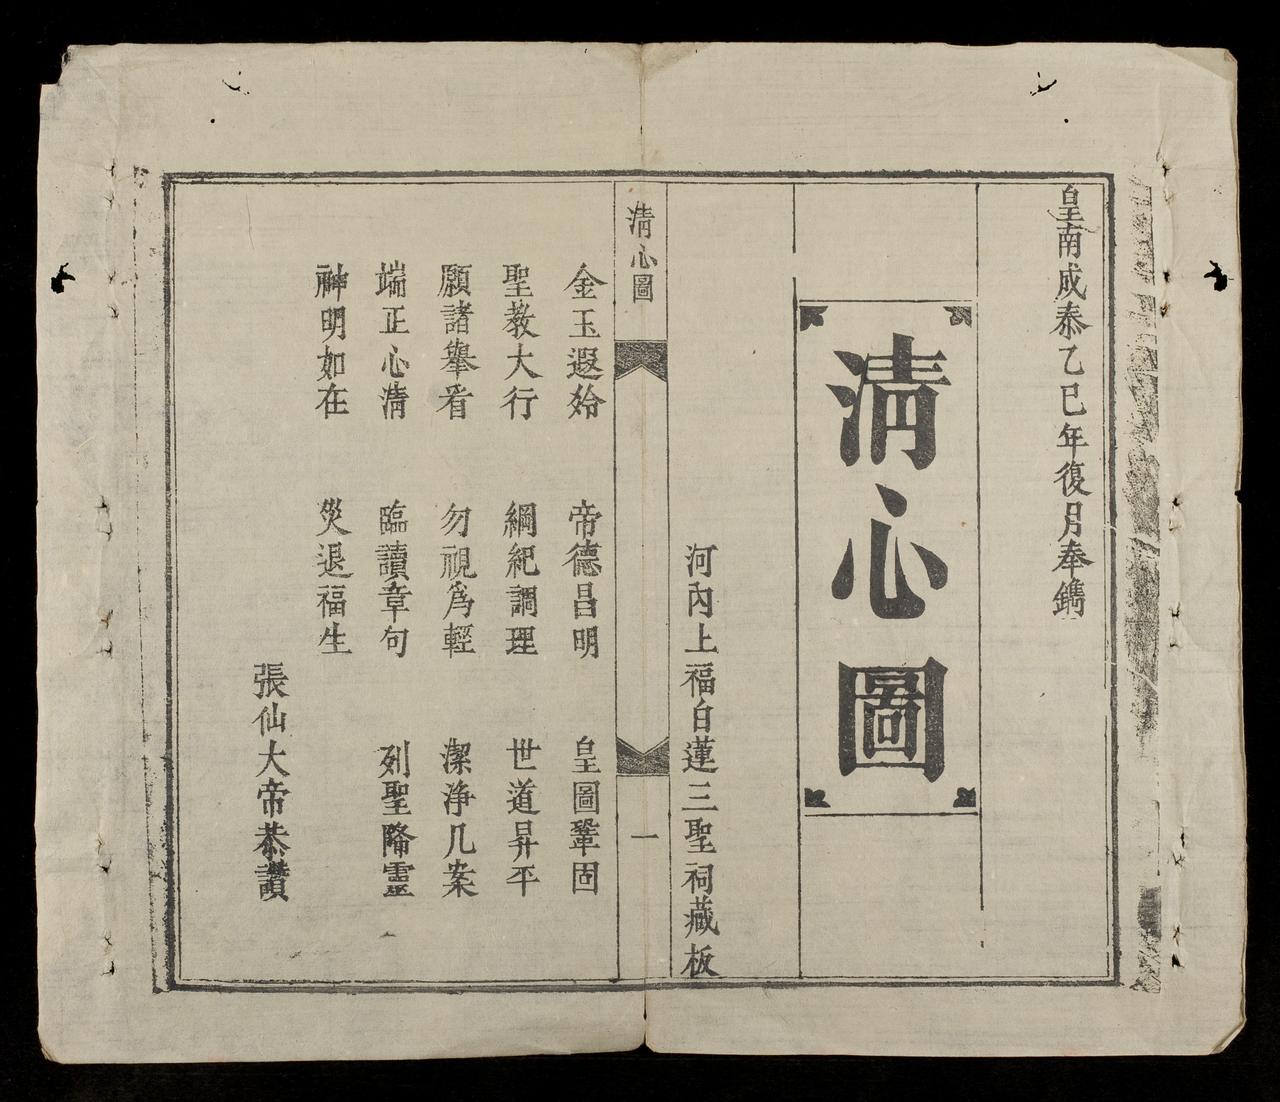 皇南成泰乙巳年復月奉鐫
清心圖
河內上福白蓮三聖祠藏板
清心圖
一
金玉遐紾 帝德昌明 皇圖鞏固
聖教大行 綱紀調理 世道昇平
願諸舉看 勿視為輕 潔淨几案
端正心清 臨讀章句 列聖降靈
神明如在 災退福生
張仙大帝恭讚